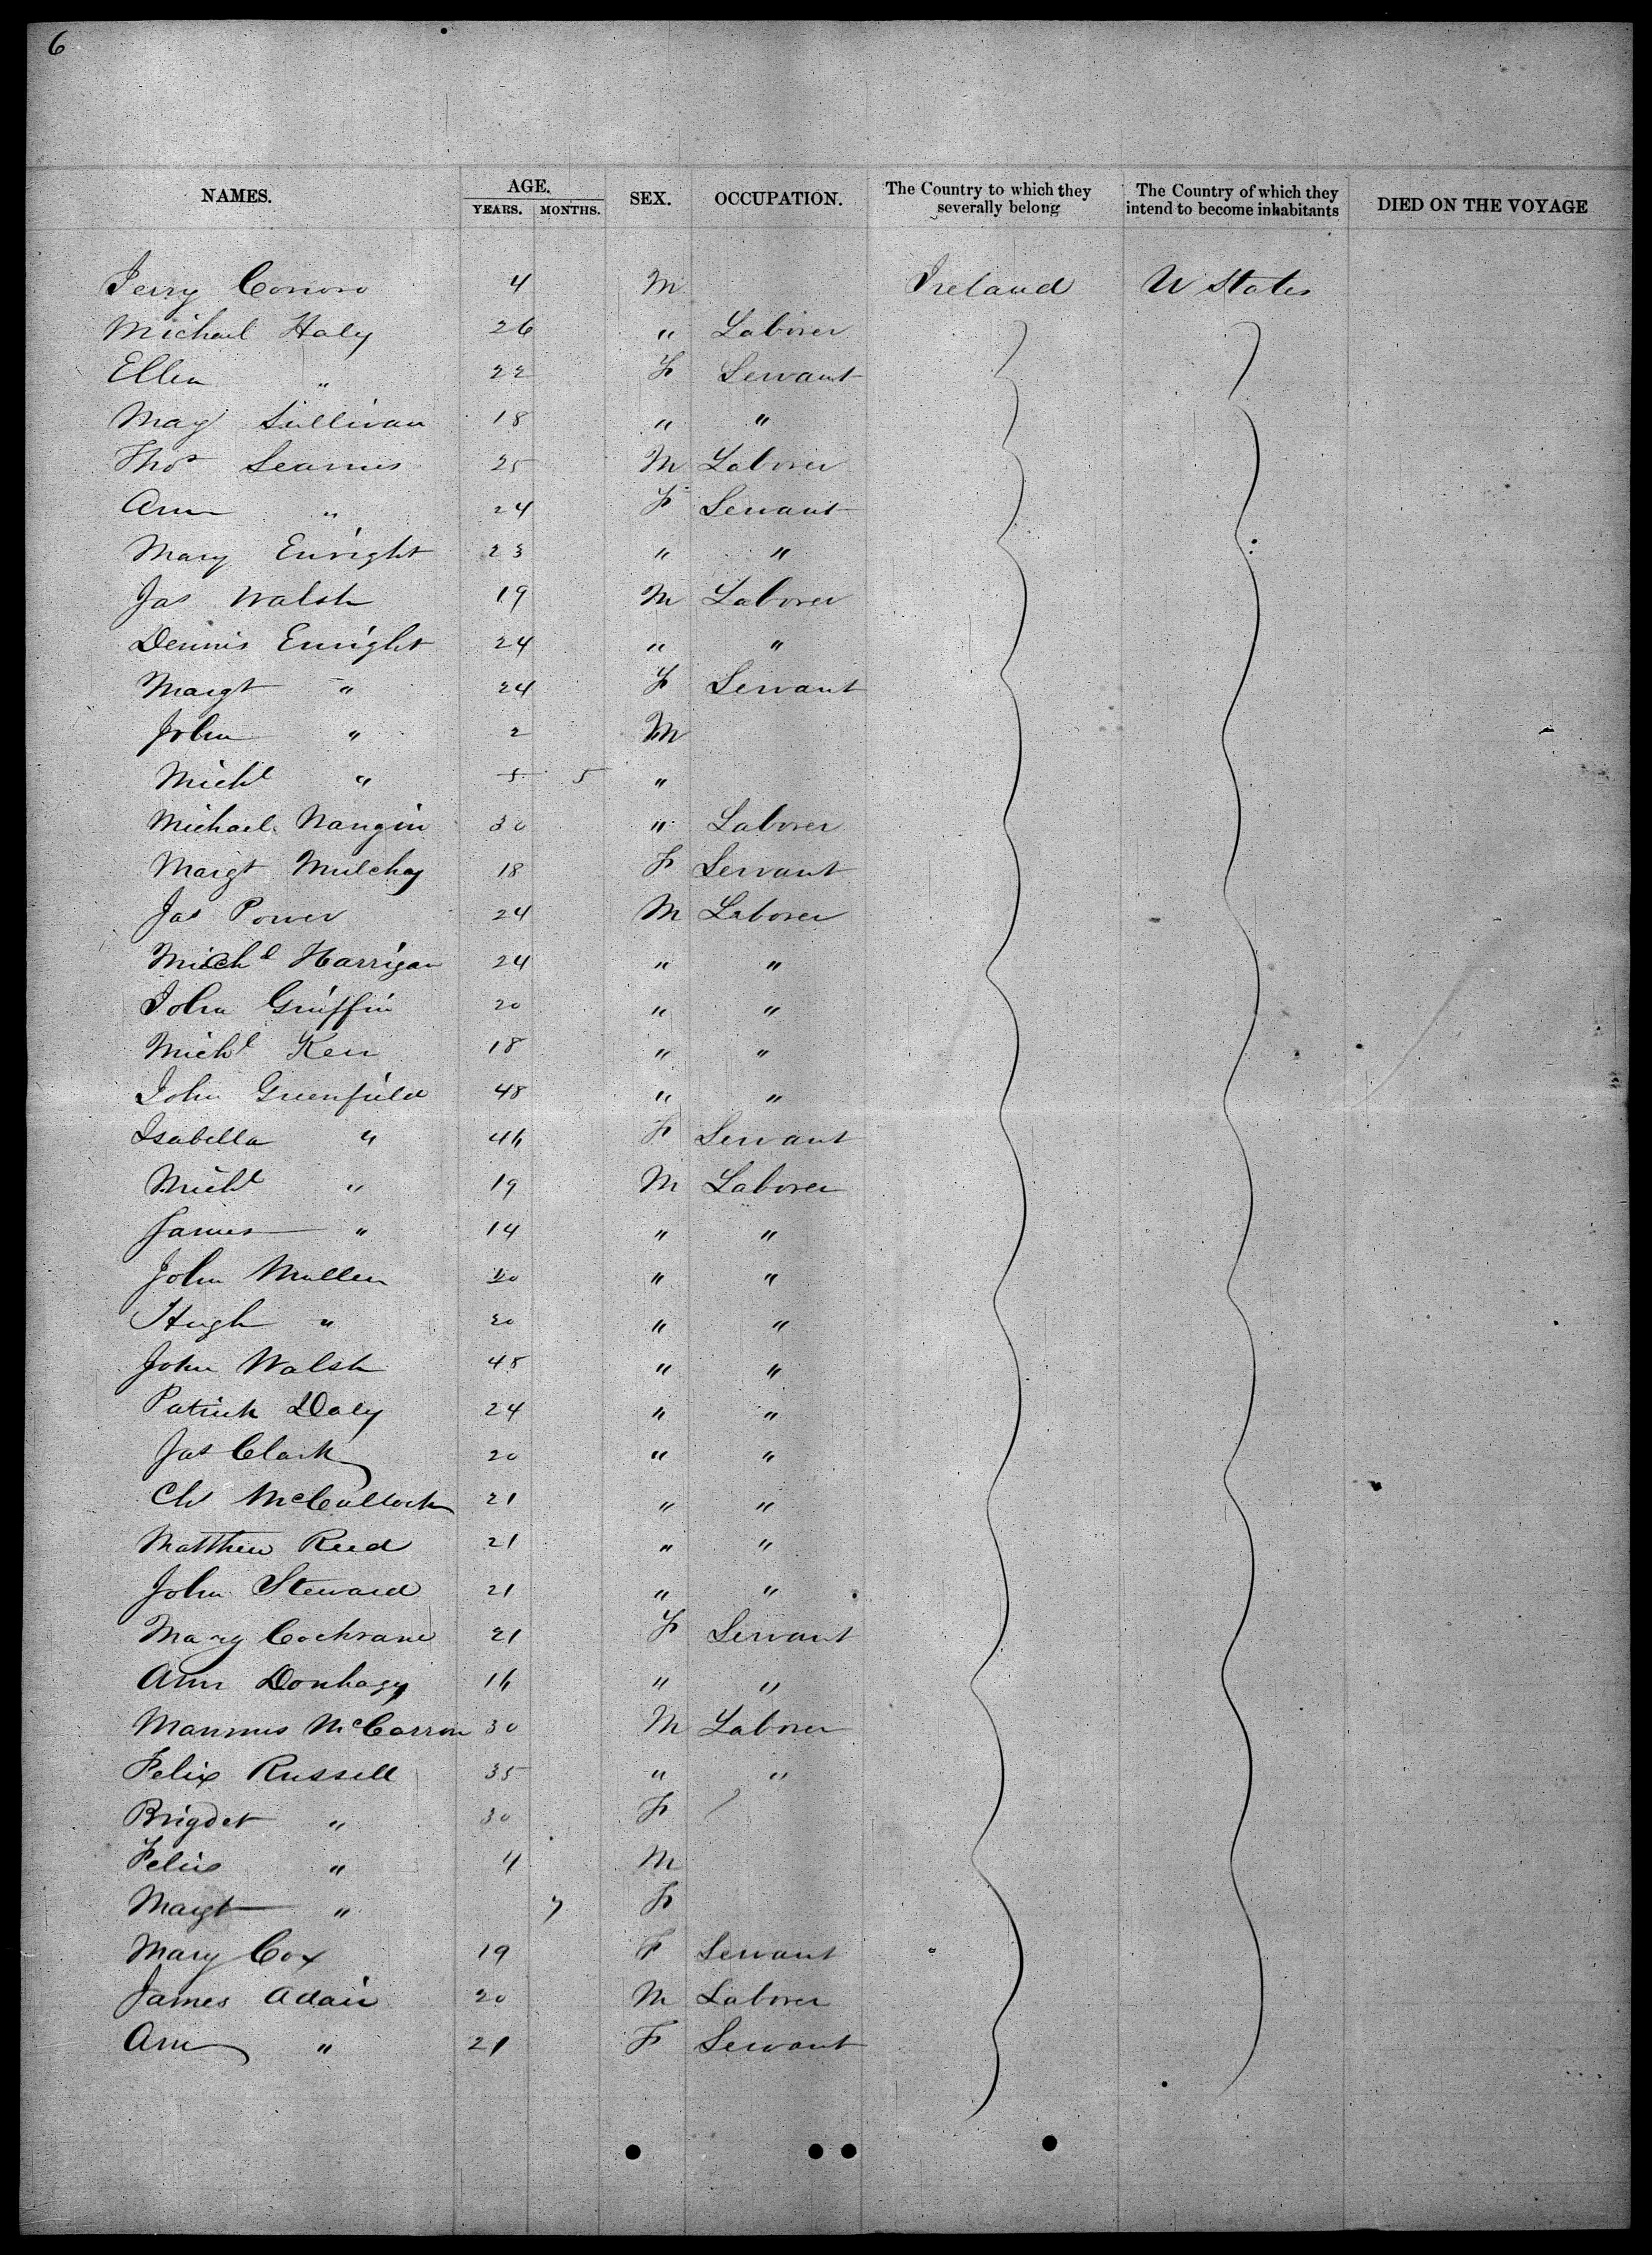 6
NAMES. AGE. YEARS. MONTHS. SEX. OCCUPATION. The Country to which they severally belong The Country of which they intend to become inhabitants DIED ON THE VOYAGE
Jerry Conoro 4 M Ireland U States
Michael Haly 26 " Laborer
Ellen " 22 F Servant
May Sullivan 18 " "
Thos Seamus 25 M Laborer
Ann " 24 F Servant
Mary Enright 23 " "
Jas Walsh 19 M Laborer
Dennis Enright 24 " "
Margt " 24 F Servant
John " 2 M
Michl " 5 5 "
Michael Nangin 30 " Laborer
Margt Mulchay 18 F Servant
Jas Power 24 M Laborer
Michl Harrigan 24 " "
John Griffin 20 " "
Michl Kerr 18 " "
John Greenfield 48 " "
Isabella " 46 F Servant
Michl " 19 M Laborer
James " 14 " "
John Mullen " "
Hugh " 20 " "
John Walsh 48 " "
Patrick Daly 24 " "
Jas Clark 20 " "
Chs McCullock 21 " "
Matthew Reed 21 " "
John Steward 21 " "
Mary Cochrane 21 F Servant
Ann Donhagy 16 " "
Mannus McCarron 30 M Laborer
Felix Russell 35 " "
Brigdet " 30 F
Felix " 4 M
Margt " 7 F
Mary Cox 19 F Servant
James Adair 20 M Laborer
Ann " 21 F Servant